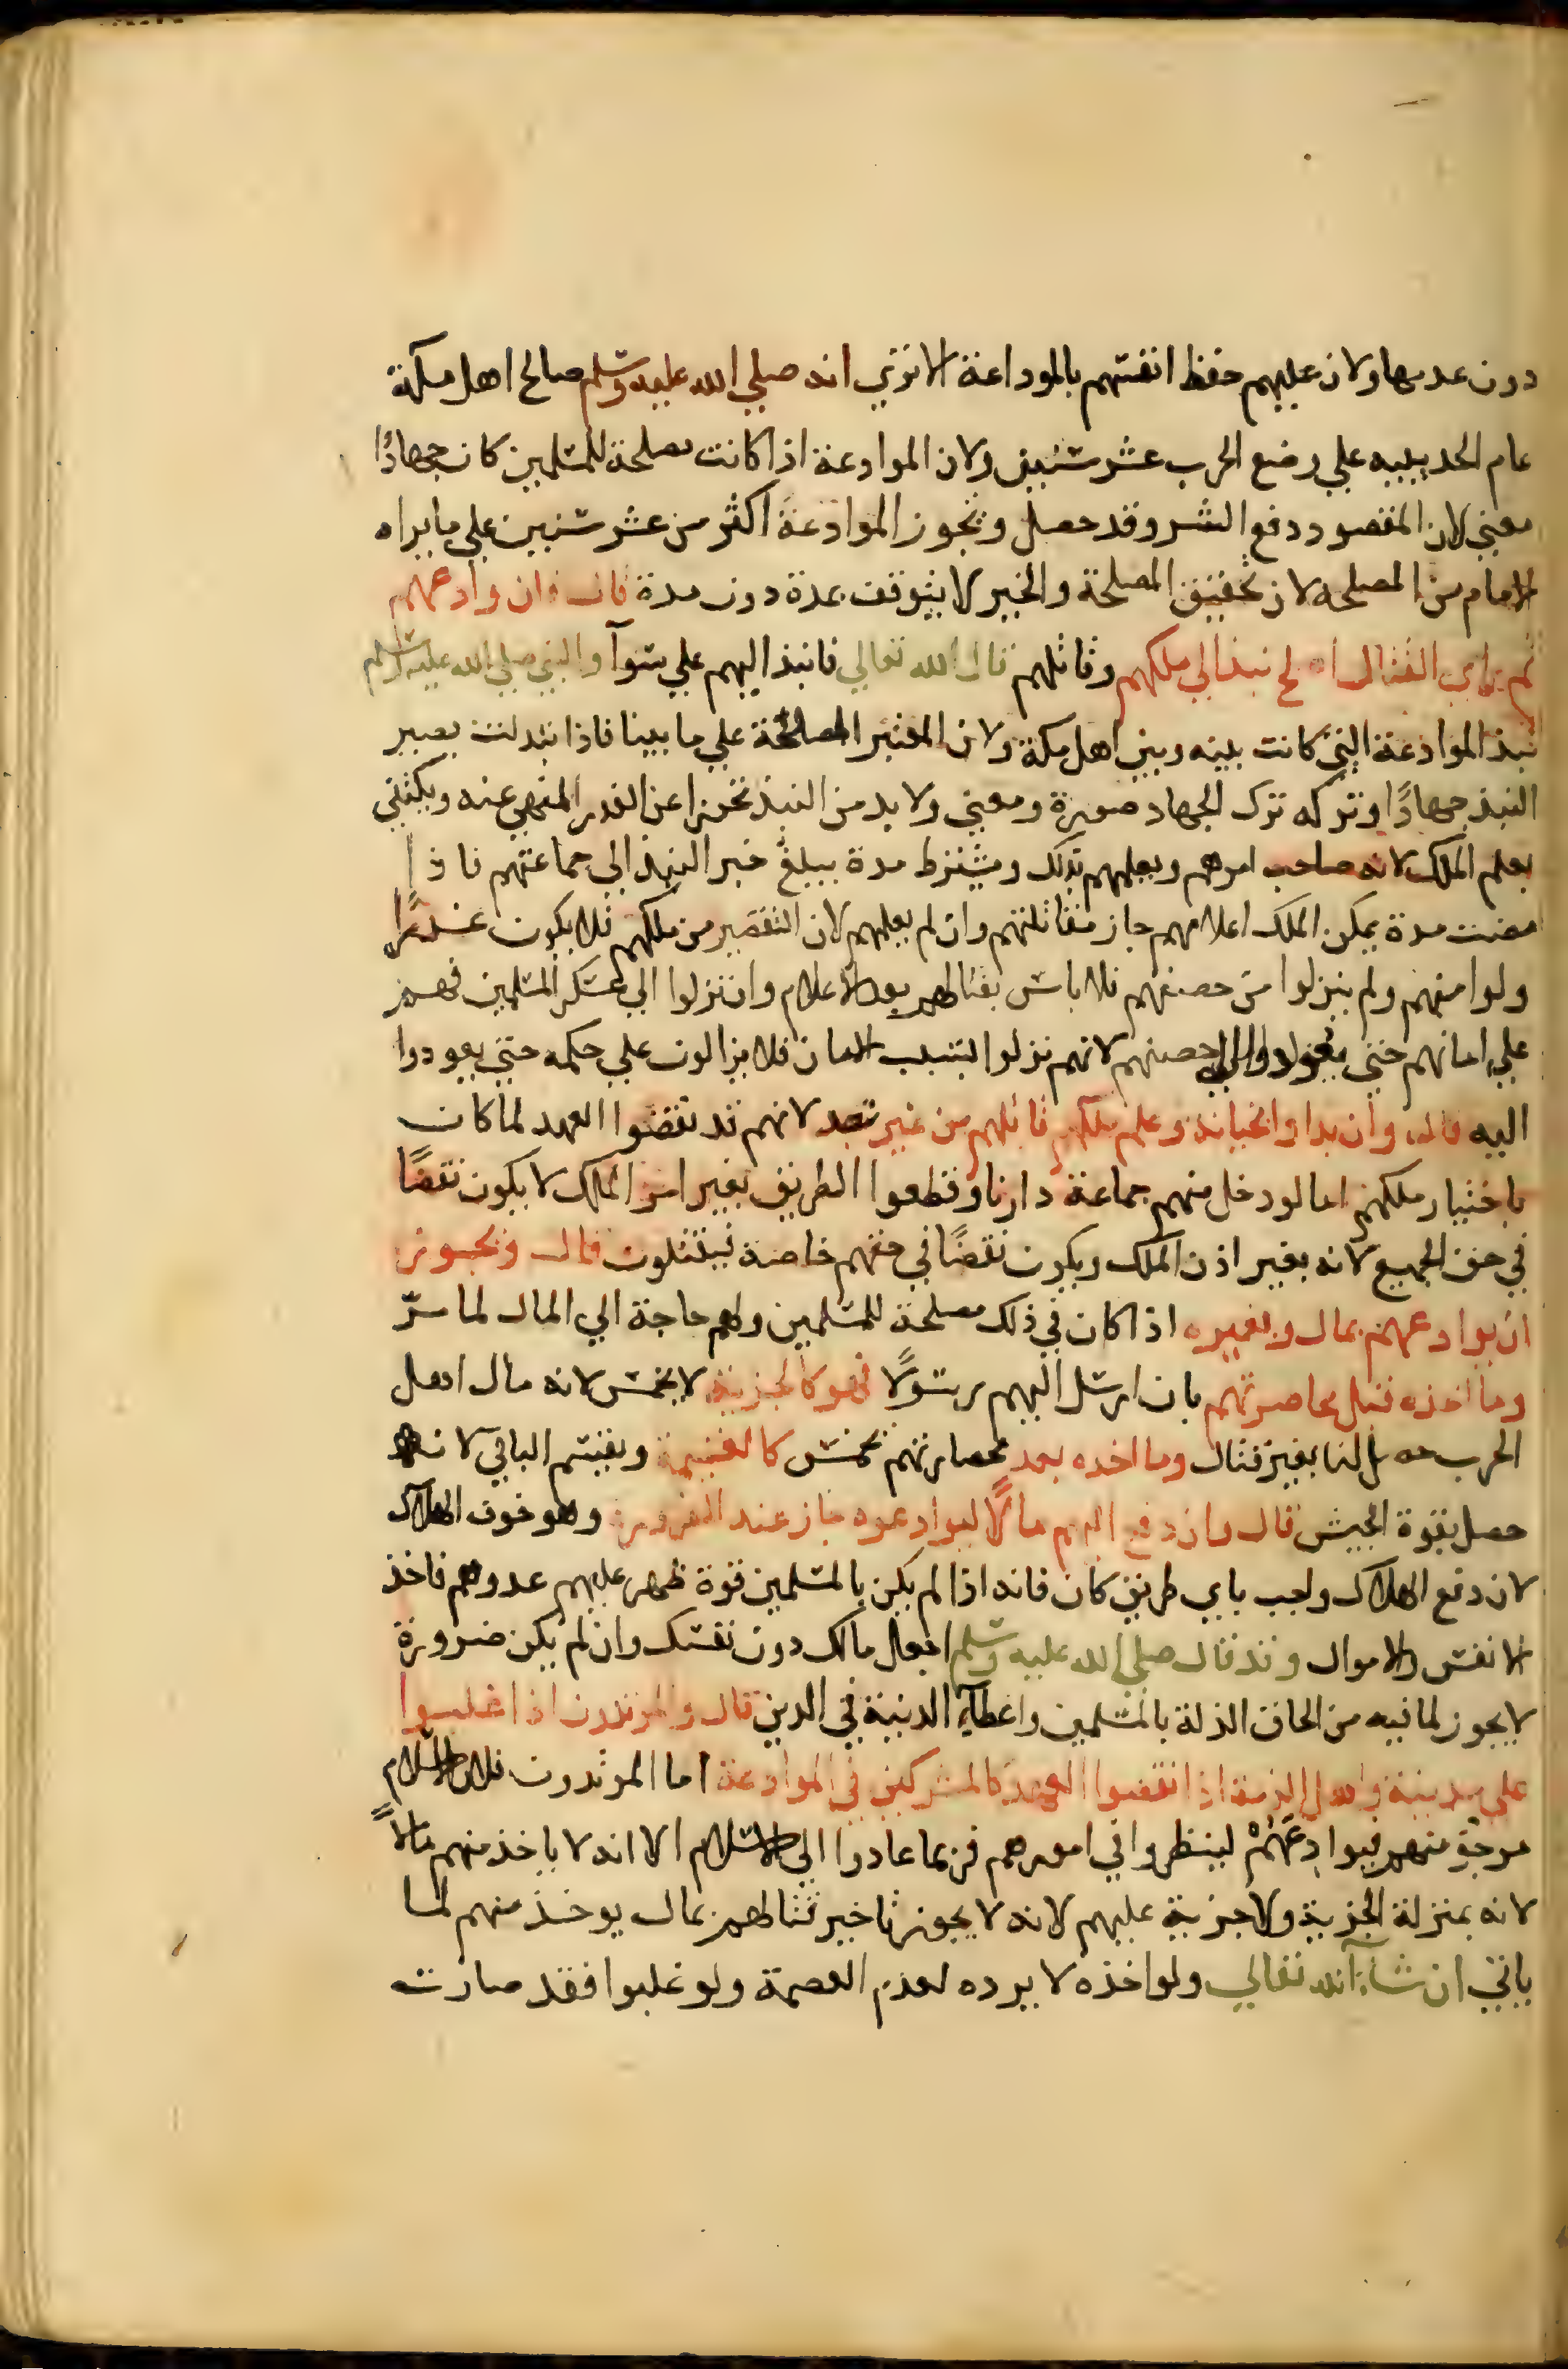 دون عدمها ولان عليهم حفظ انفسهم بالموداعة الا تري انه صلي الله عليه وسلم صالح اهل مكة
عام الحديبيه علي وضع الحرب عشر سنين ولان الموادعة اذا كانت مصلحة للمسلمين كان جهادًا
معني لان المقصود دفع الشر وقد حصل وتجوز الموادعة اكثر من عشر سنين علي ما يراه
الامام من المصلحه لان تحقيق المصلحة والخير لا يتوقف بمدة دون مدة قال فان وادعهم
ثم راي القتال اصلح نبذ الي ملكهم وقاتلهم قال الله تعالي فانبذ اليهم علي سوآ والنبي صلي الله عليه وسلم
نبذ الموادعة التي كانت بينه وبين اهل مكة ولان المعتبر المصلحة علي ما بينا فاذا تبدلت يصير
النبذ جهادًا وتركه ترك الجهاد صورة ومعني ولا بد من النبذ تحرزا عن الغدر المنهي عنه ويكتفي
بعلم الملك لانه صاحب امرهم ويعلمهم بذلك ويشترط مدة يبلغ خبر النبذ الي جماعتهم فاذا
مضت مدة يمكن الملك اعلامهم جاز مقاتلتهم وان لم يعلمهم لان التقصير من ملكهم فلا يكون غدرًا
ولو امنهم ولم ينزلوا من حصنهم فلا باس بقتالهم بعد الاعلام وان نزلوا الي عسكر المسلمين فهم
علي امانهم حتي يعودوا الي حصنهم لانهم نزلوا بسبب الامان فلا يزالون علي حكمه حتي يعودوا
اليه قال وان بداوا بخيانة وعلم ملكهم قاتلهم من غير نبذ لانهم قد نقضوا العهد لما كان
باختيار ملكهم اما لو دخل منهم جماعة دارنا وقطعوا الطريق بغير امر الملك لا يكون نقضًا
في حق الجميع لانه بغير اذن الملك ويكون نقضًا في حقهم خاصة فيقتلون قال ويجوز
ان يوادعهم بمال وبغيره اذا كان في ذلك مصلحة للمسلمين ولهم حاجة الي المال لما مرّ
وما اخذه قبل محاصرتهم بان ارسل اليهم رسولًا فهو كالجزية لا يخمس لانه مال اهل
الحرب حصل لنا بغير قتال وما اخده بعد محصارتهم يخمس كالغنيمة ويقسم الباقي لانه
حصل بقوة الجيش قال وان دفع اليهم مالًا ليوادعوه جاز عند الضرورة وهو خوف الهلاك
لان دفع الهلاك واجب باي طريق كان فانه اذا لم يكن بالمسلمين قوة ظهر عليهم عدوهم فاخذ
الانفس والاموال وقد قال صلي الله عليه وسلم اجعل مالك دون نفسك وان لم يكن ضرورة
لا يجوز لما فيه من الحاق الذلة بالمسلمين واعطآء الدنية في الدين قال والمرتدون اذا غلبوا
علي مدينة واهل الذمة اذا نقضوا العهد كالمشركين في الموادعة اما المرتدون فلان الاسلام
مرجو منهم فيوادعهم لينظروا في امورهم فربما عادوا الي الاسلام الا انه لا ياخذ منهم مالًا
لانه بمنزلة الجزية ولا جزية عليهم لانه لا يجوز تاخير قتالهم بمال يوخذ منهم لما
ياتي ان شآء الله تعالي ولو اخذه لا يرده لعدم العصمة ولو غلبوا فقد صارت